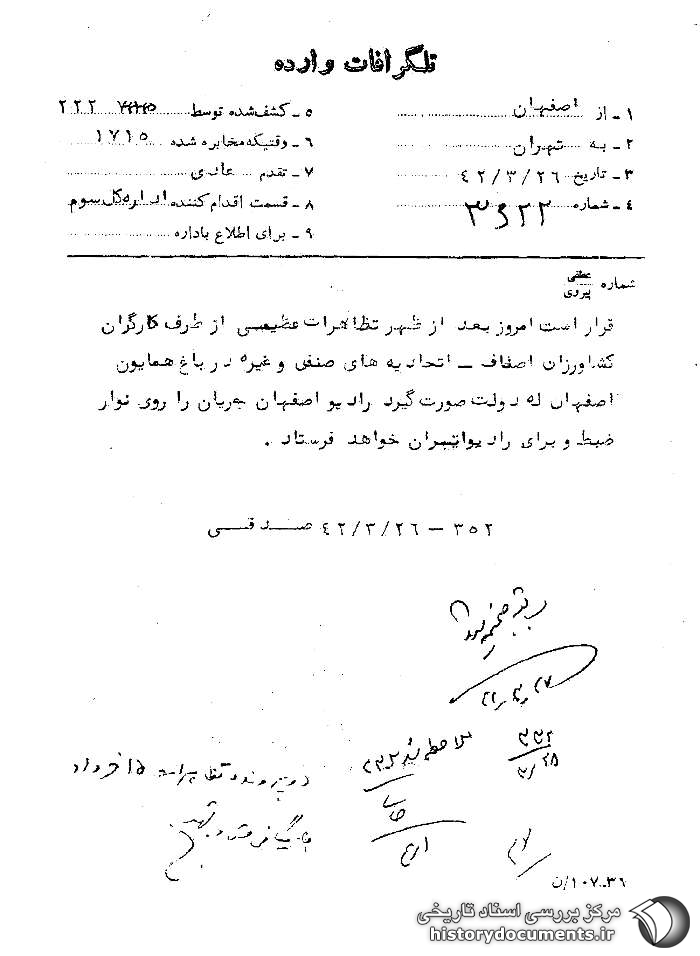 تلگرافات وارده
۱ـ از اصفهان
۲ـ به تهران
۳ـ تاریخ ۴۲/۳/۲۶
۴ـ شماره ۳۶۲۲
۵ـ کشف‌شده توسط ۲۲۲
۶ـ وقتیکه مخابره شده ۱۷۱۵
۷ـ تقدم عادی
۸ـ قسمت اقدام کننده اداره کل سوم
۹ـ برای اطلاع باداره
شماره عطفی پیروی
قرار است امروز بعد از ظهر تظاهرات عظیمی از طرف کارگران
کشاورزان اصفاف ـ اتحادیه های صنفی و غیره در باغ همایون
اصفهان له دولت صورت گیرد رادیو اصفهان جریان را روی نوار
ضبط و برای رادیو تهران خواهد فرستاد .
۳۵۲ ـ ۴۲/۳/۲۶ صدقی
ملاحظه شد
۳۳۲
۳/۲۸
در پرونده تظاهرات ۱۵ خرداد
بایگانی
۱۰۷۰۳۶/ن
مرکز بررسی اسناد تاریخی
historydocuments.ir